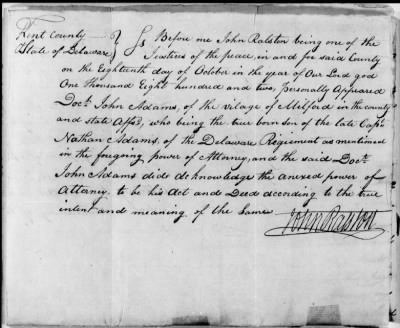 Kent County } Ss Before me John Ralston being one of the
State of Delaware } Justices of the peace, in and for said County
on the Eighteenth day of October in the year of Our Lord god
One thousand Eight hundred and two, personally Appeared
Doct. John Adams, of the village of Milford in the county
and state Affsd, who being the true born son of the late Capn
Nathan Adams, of the Delaware Regiment as mentioned
in the foregoing power of Attorney, and the said Doct.
John Adams did acknowledge the anexed power of
Attorney to be his Act and Deed according to the true
intent and meaning of the Same
John Ralston